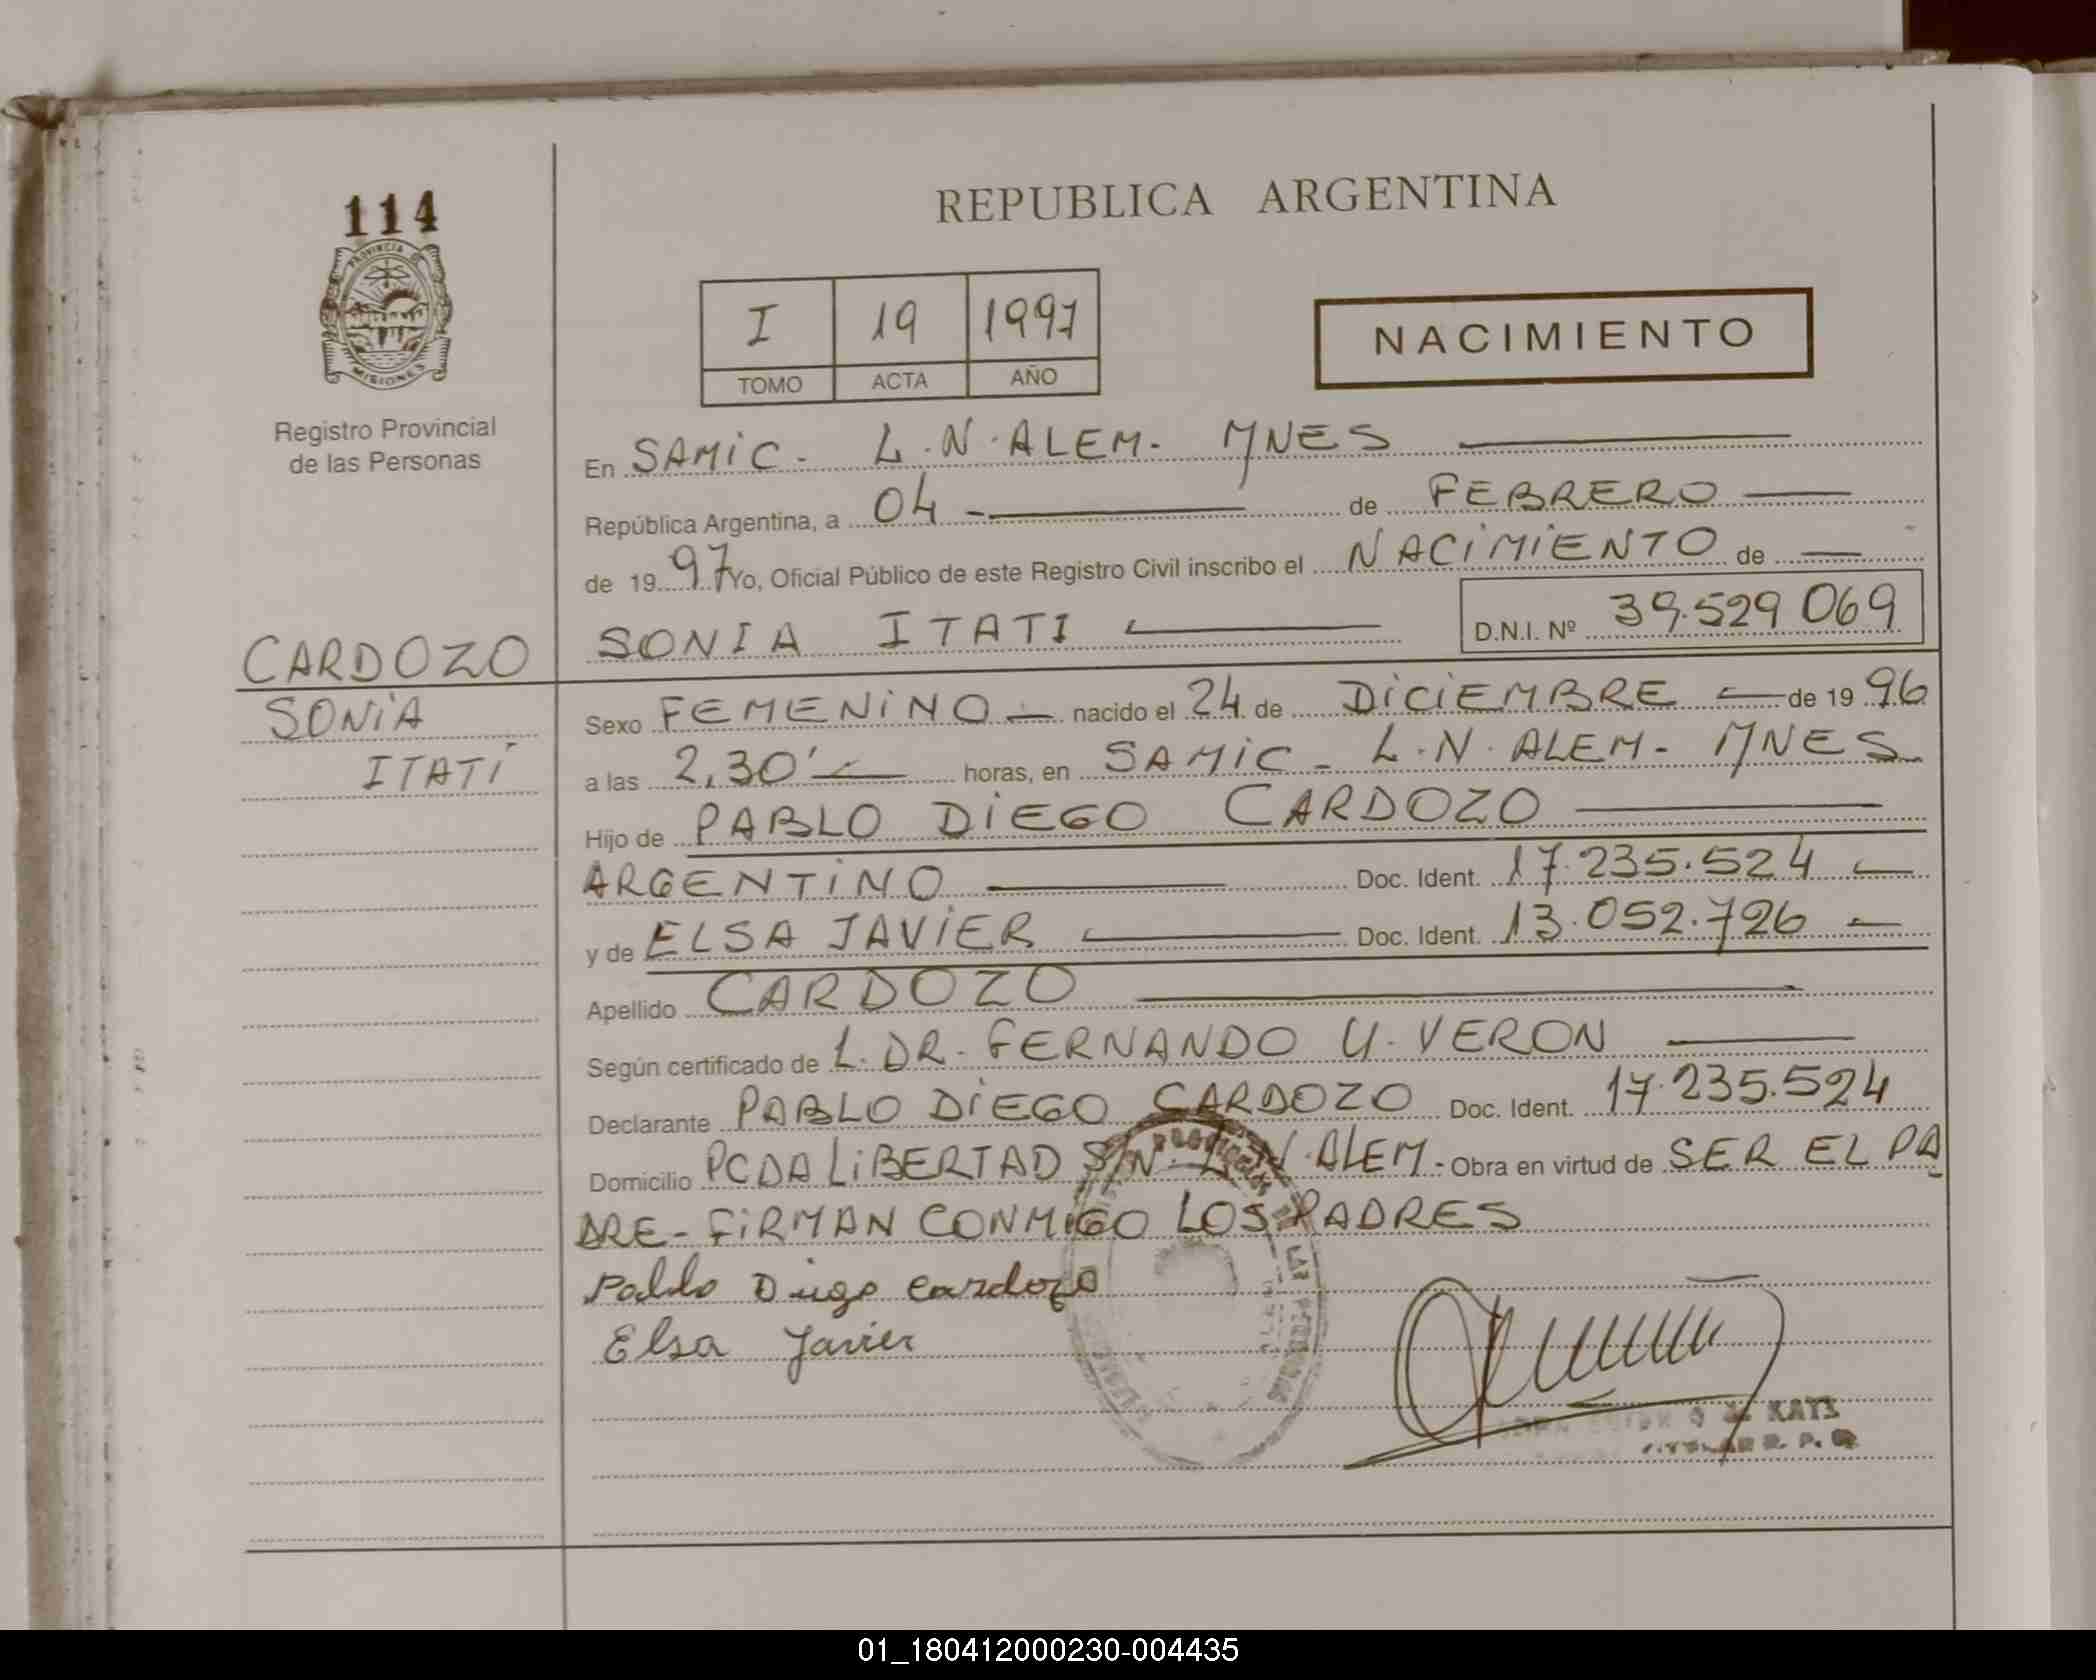 114
PROVINCIA DE
MISIONES
Registro Provincial
de las Personas
CARDOZO
SONIA
ITATÍ
REPUBLICA ARGENTINA
I 19 1997
TOMO ACTA AÑO
NACIMIENTO
En SAMIC - L.N. ALEM - MNES
República Argentina, a 04 - de FEBRERO
de 1997 Yo, Oficial Público de este Registro Civil inscribo el NACIMIENTO de
SONIA ITATI D.N.I. Nº 39.529 069
Sexo FEMENINO nacido el 24 de DICIEMBRE de 1996
a las 2,30' horas, en SAMIC - L.N. ALEM - MNES
Hijo de PABLO DIEGO CARDOZO
ARGENTINO Doc. Ident. 17.235.524
y de ELSA JAVIER Doc. Ident. 13.052.726
Apellido CARDOZO
Según certificado de L. DR. FERNANDO U. VERON
Declarante PABLO DIEGO CARDOZO Doc. Ident. 17.235.524
Domicilio PCDA LIBERTAD S/N. L.N. ALEM - Obra en virtud de SER EL PA
DRE - FIRMAN CONMIGO LOS PADRES
Pablo Diego Cardozo
Elsa Javier
KATZ
R. P.
01_180412000230-004435